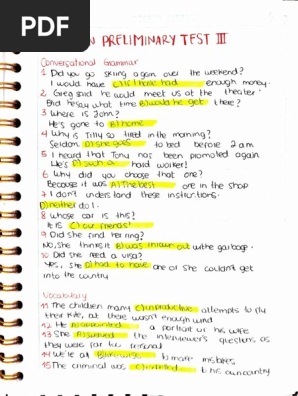 PDF
N PRELIMINARY TEST III
Conversational Grammar
1 Did you go skiing again over the weekend?
I would have C) if I had had enough money.
2 Greg said he would meet us at the theater.
Did he say what time B) would he get there?
3 Where is John?
He's gone to B) home
4 Why is Tilly so tired in the morning?
Seldom D) she goes to bed before 2 am
5 I heard that Tony has been promoted again
He's D) such a hard worker!
6 Why did you choose that one?
Because it was A) The best one in the shop
7 I don't understand these instructions.
D) neither do I.
8 Whose car is this?
It is C) our friends'
9 Did she find her ring?
No, she thinks it B) was thrown out with the garbage.
10 Did she need a visa?
Yes, she D) had to have one or she couldn't get
into the country
Vocabulary
11 The children many C) inproductive attempts to fly
their kite, as there wasn't enough wind
12 He a portrait of his wife
13 She the interviewer's questions as
they were far too personal
14 We're all to make mistakes
15 The criminal was to his own country